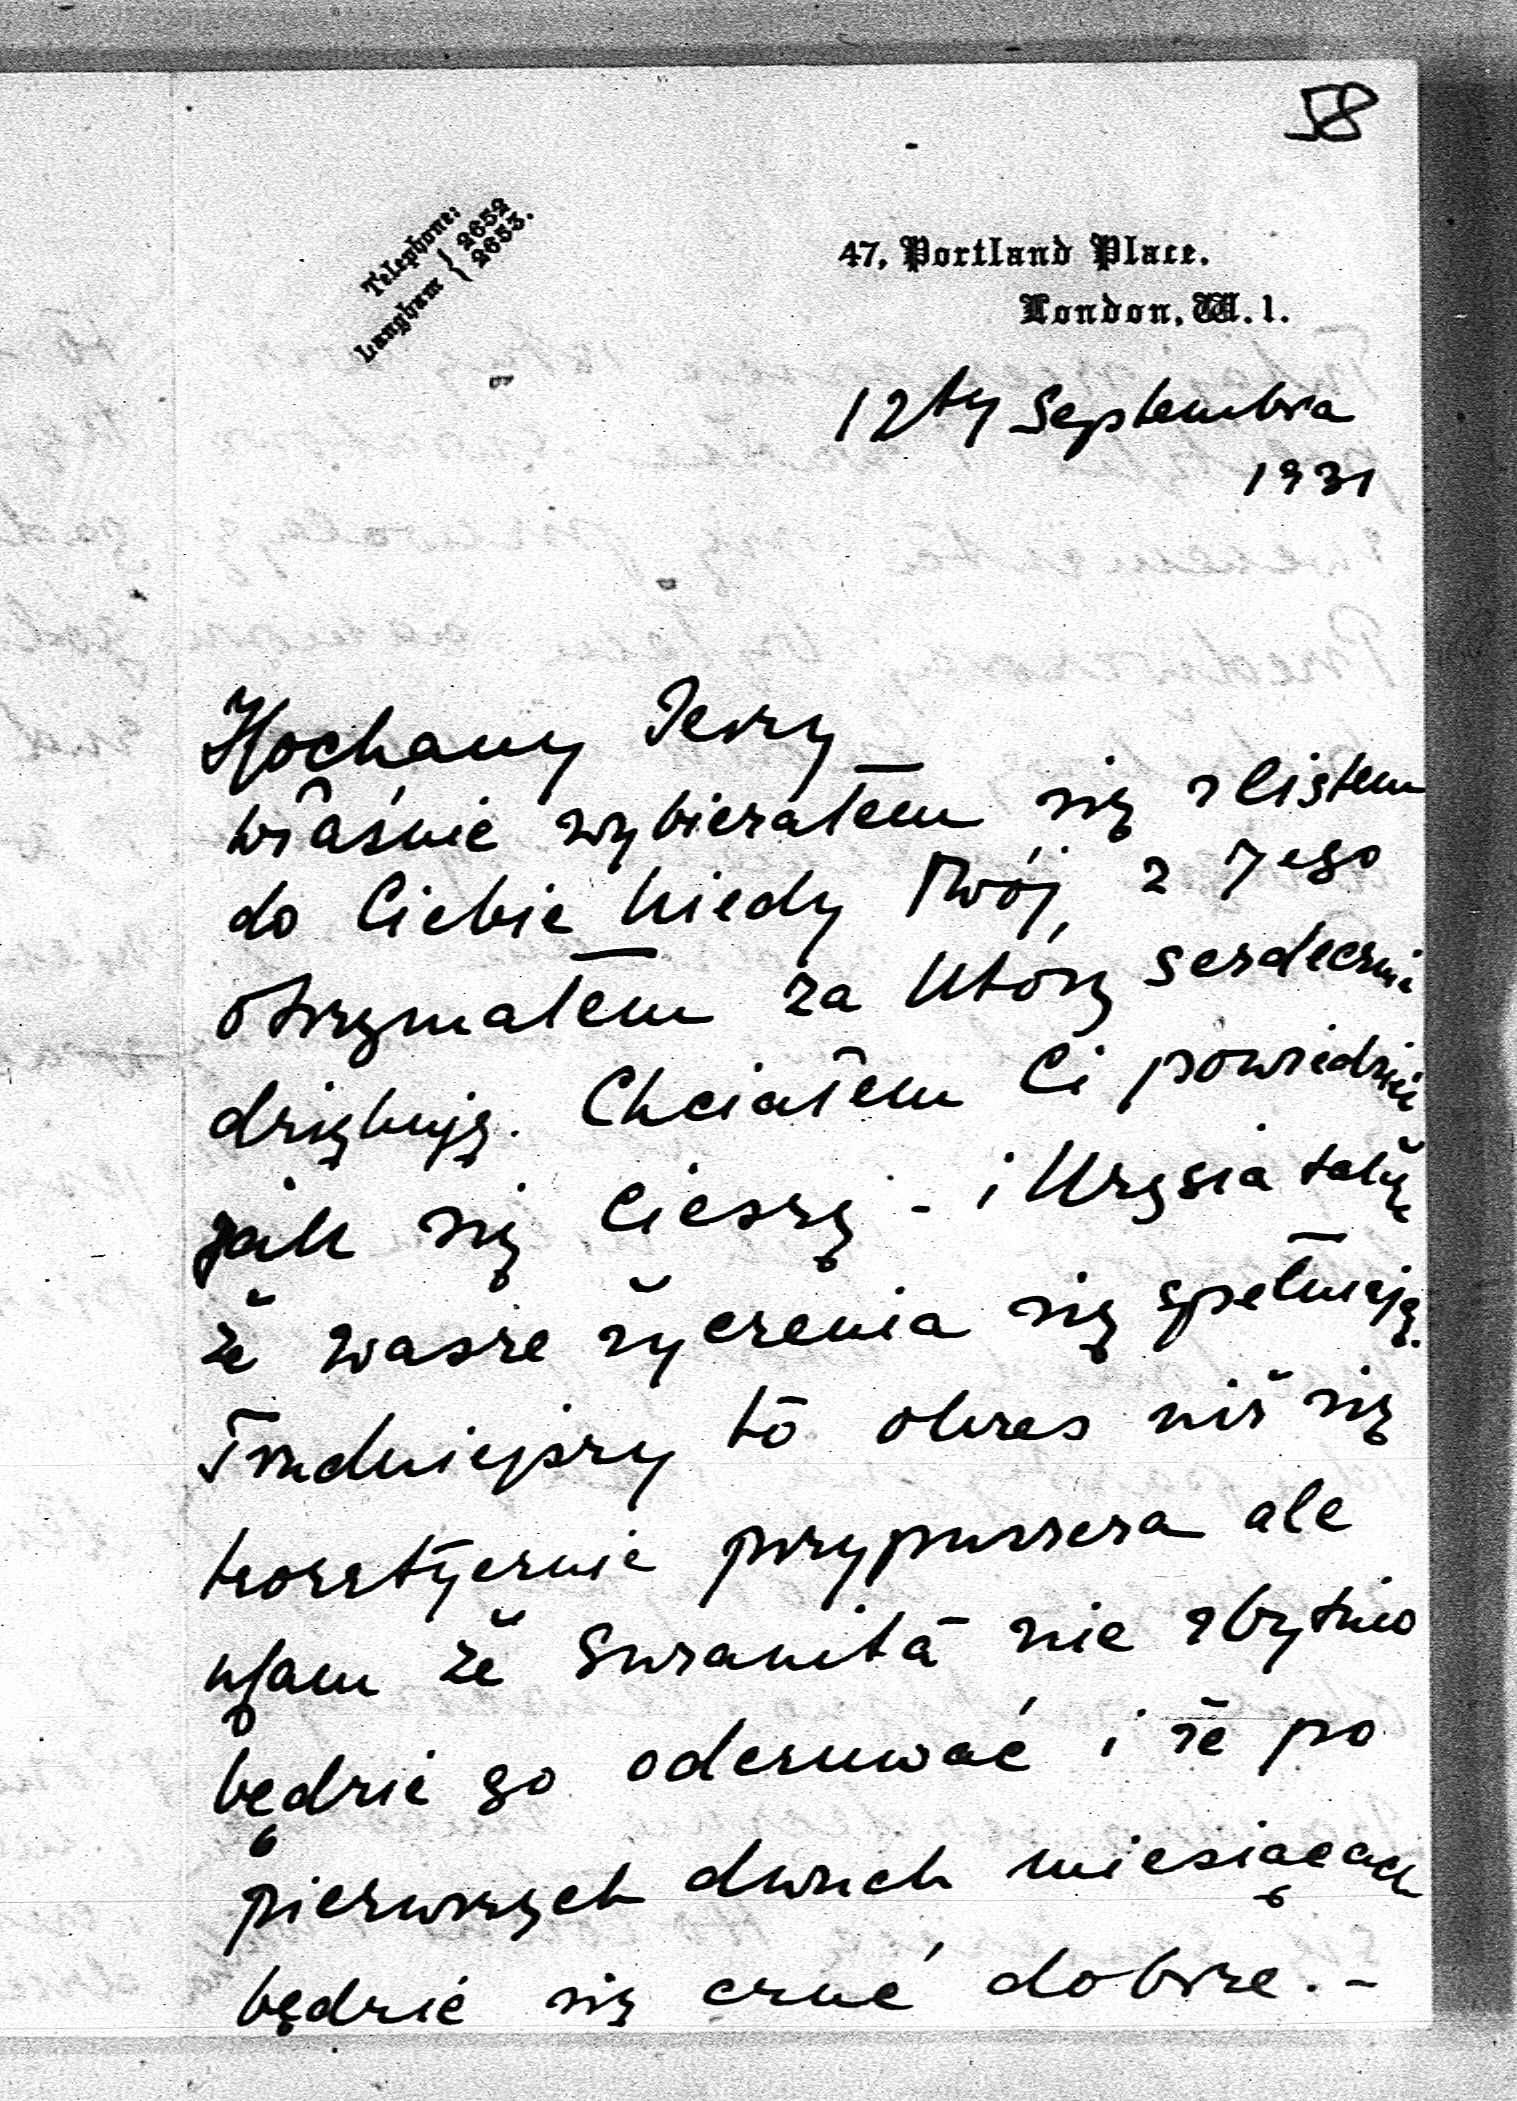 58
Telephone:
Langham { 2652
2653.
47, Portland Place.
London, W.1.
12ty Septembra
1931
Kochany Jerzy
właśnie wybierałem się z listem
do Ciebie kiedy Twój z 7ego
otrzymałem za który serdecznie
dziękuję. Chciałem Ci powiedzieć
jak się cieszę - i Krysia także
że wasze życzenia się spełniają.
Trudniejszy to okres niż się
teoretycznie przypuszcza ale
ufam że Suzanita nie zbytnio
będzie go odczuwać i że po
pierwszych dwuch miesiącach
będzie się czuć dobrze. -